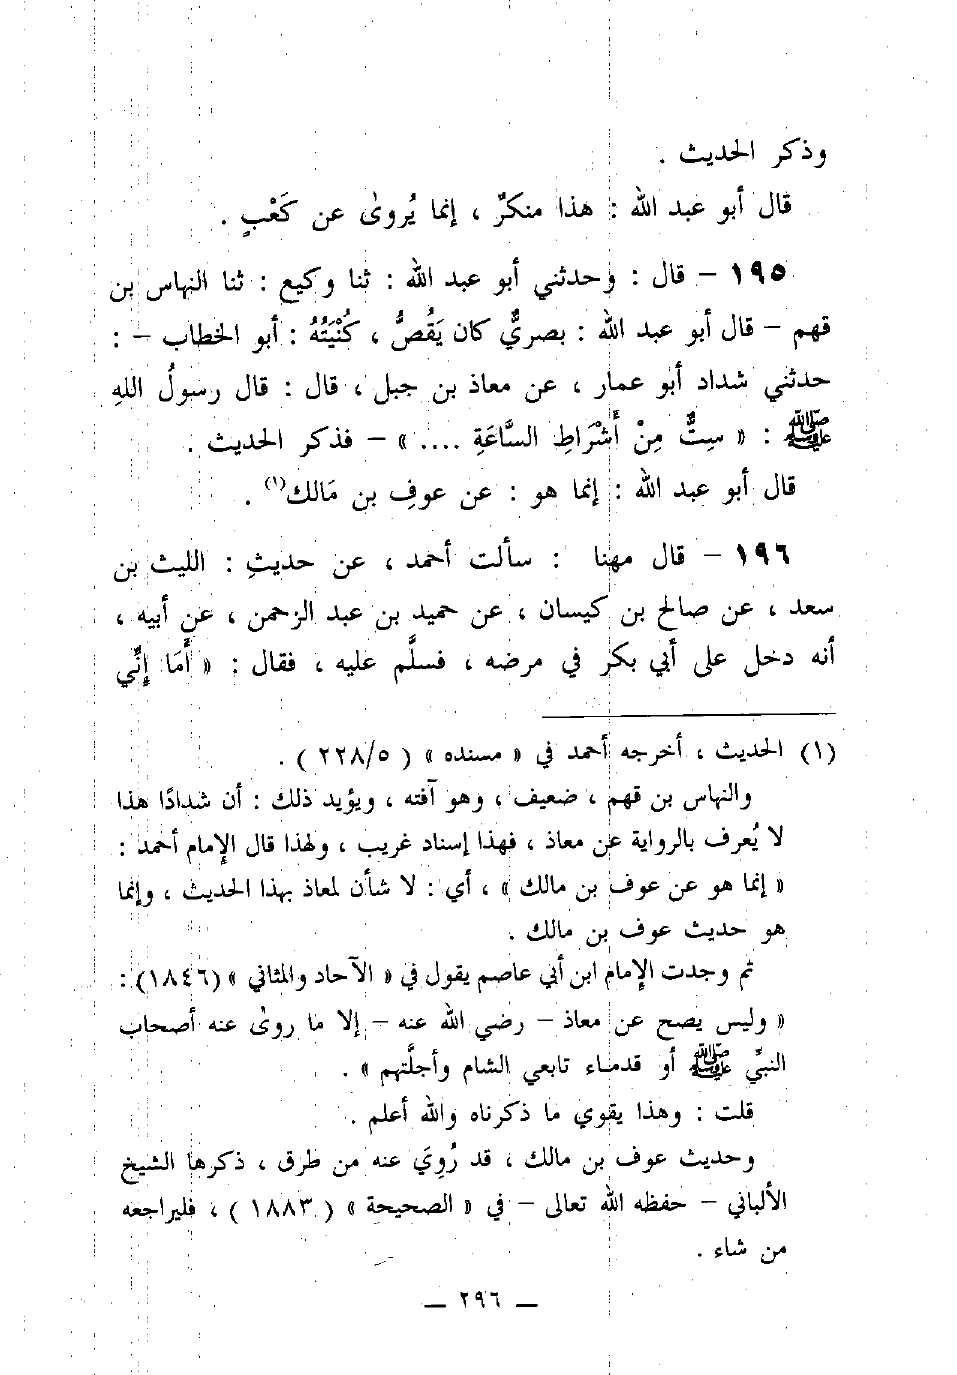 وذكر الحديث .
قال أبو عبد الله : هذا منكرٌ ، إنما يُروىٰ عن كَعْبٍ .
١٩٥ – قال : وحدثني أبو عبد الله : ثنا وكيع : ثنا النهاس بن
قهم – قال أبو عبد الله : بصريٌّ كان يَقُصُّ ، كُنْيَتُهُ : أبو الخطاب – :
حدثني شداد أبو عمار ، عن معاذ بن جبل ، قال : قال رسولُ اللهِ
ﷺ : « سِتٌّ مِنْ أَشْرَاطِ السَّاعَةِ .... » – فذكر الحديث .
قال أبو عبد الله : إنما هو : عن عوفِ بن مَالك(١) .
١٩٦ – قال مهنا : سألت أحمد ، عن حديثِ : الليث بن
سعد ، عن صالح بن كيسان ، عن حميد بن عبد الرحمن ، عن أبيه ،
أنه دخل على أبي بكر في مرضه ، فسلَّم عليه ، فقال : « أَمَا إِنِّي
(١) الحديث ، أخرجه أحمد في « مسنده » ( ٢٢٨/٥ ) .
والنهاس بن قهم ، ضعيف ، وهو آفته ، ويؤيد ذلك : أن شدادًا هذا
لا يُعرف بالرواية عن معاذ ، فهذا إسناد غريب ، ولهذا قال الإمام أحمد :
« إنما هو عن عوف بن مالك » ، أي : لا شأن لمعاذ بهذا الحديث ، وإنما
هو حديث عوف بن مالك .
ثم وجدت الإمام ابن أبي عاصم يقول في « الآحاد والمثاني » (١٨٤٦) :
« وليس يصح عن معاذ – رضي الله عنه – إلا ما روىٰ عنه أصحاب
النبيِّ ﷺ أو قدماء تابعي الشام وأجلَّتهم » .
قلت : وهذا يقوي ما ذكرناه والله أعلم .
وحديث عوف بن مالك ، قد رُوِيَ عنه من طرق ، ذكرها الشيخ
الألباني – حفظه الله تعالى – في « الصحيحة » ( ١٨٨٣ ) ، فليراجعه
من شاء .
— ٢٩٦ —